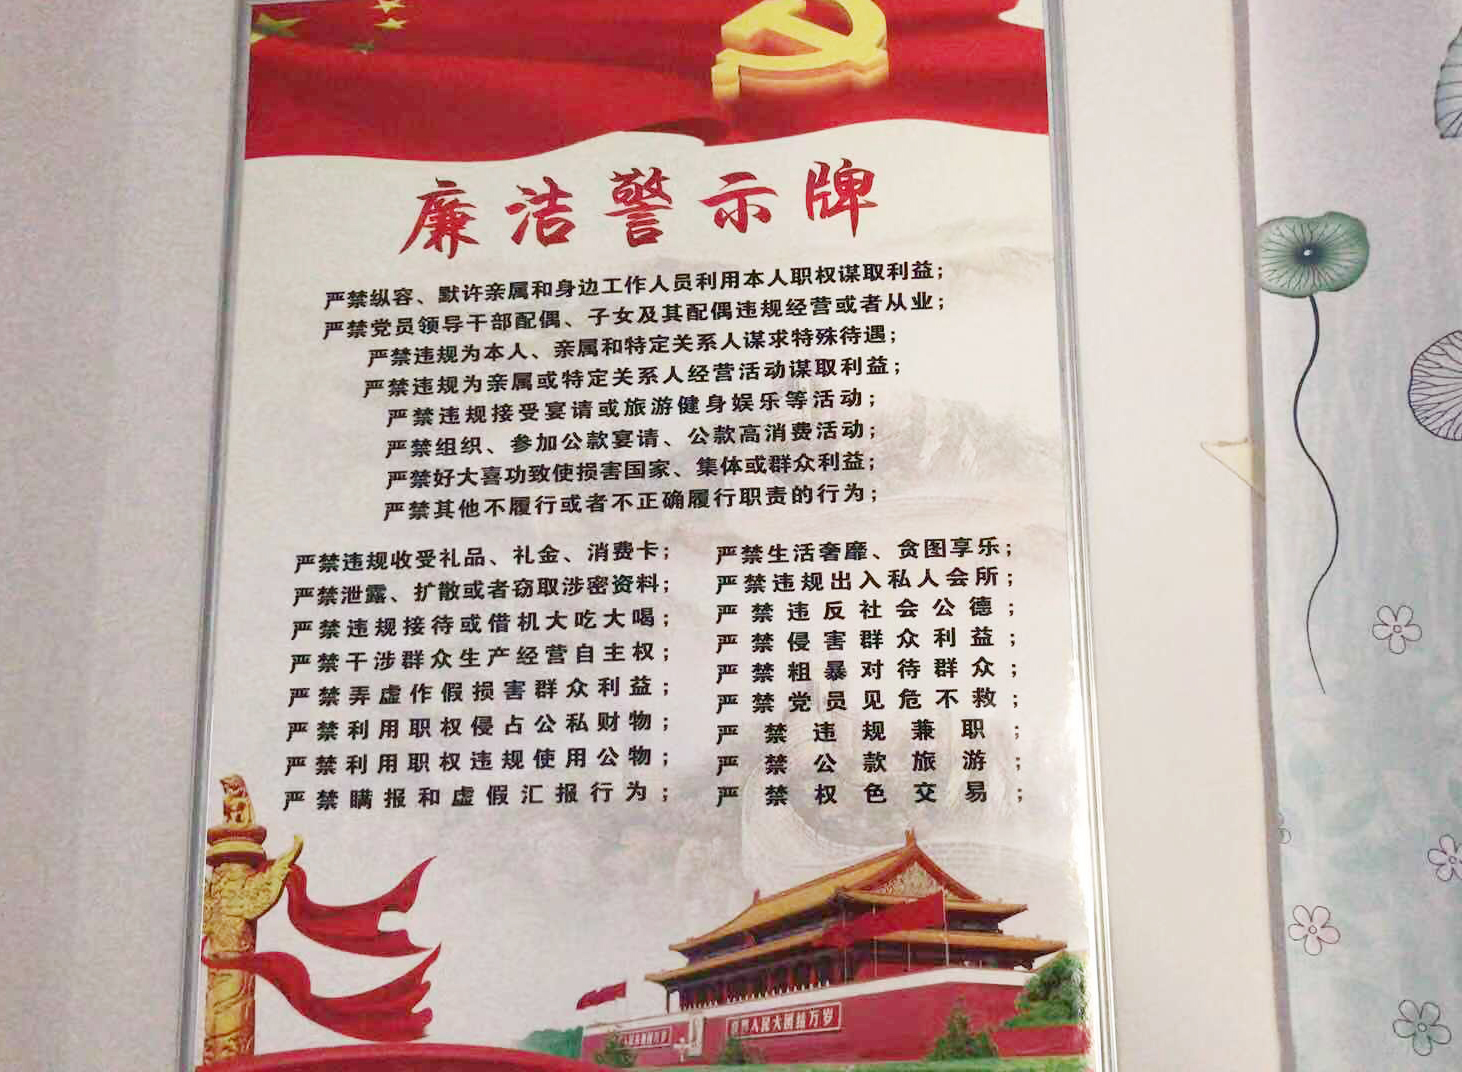 廉洁警示牌
严禁纵容、默许亲属和身边工作人员利用本人职权谋取利益；
严禁党员领导干部配偶、子女及其配偶违规经营或者从业；
严禁违规为本人、亲属和特定关系人谋求特殊待遇；
严禁违规为亲属或特定关系人经营活动谋取利益；
严禁违规接受宴请或旅游健身娱乐等活动；
严禁组织、参加公款宴请、公款高消费活动；
严禁好大喜功致使损害国家、集体或群众利益；
严禁其他不履行或者不正确履行职责的行为；
严禁违规收受礼品、礼金、消费卡；
严禁泄露、扩散或者窃取涉密资料；
严禁违规接待或借机大吃大喝；
严禁干涉群众生产经营自主权；
严禁弄虚作假损害群众利益；
严禁利用职权侵占公私财物；
严禁利用职权违规使用公物；
严禁瞒报和虚假汇报行为；
严禁生活奢靡、贪图享乐；
严禁违规出入私人会所；
严禁违反社会公德；
严禁侵害群众利益；
严禁粗暴对待群众；
严禁党员见危不救；
严禁违规兼职；
严禁公款旅游；
严禁权色交易；
人民大团结万岁